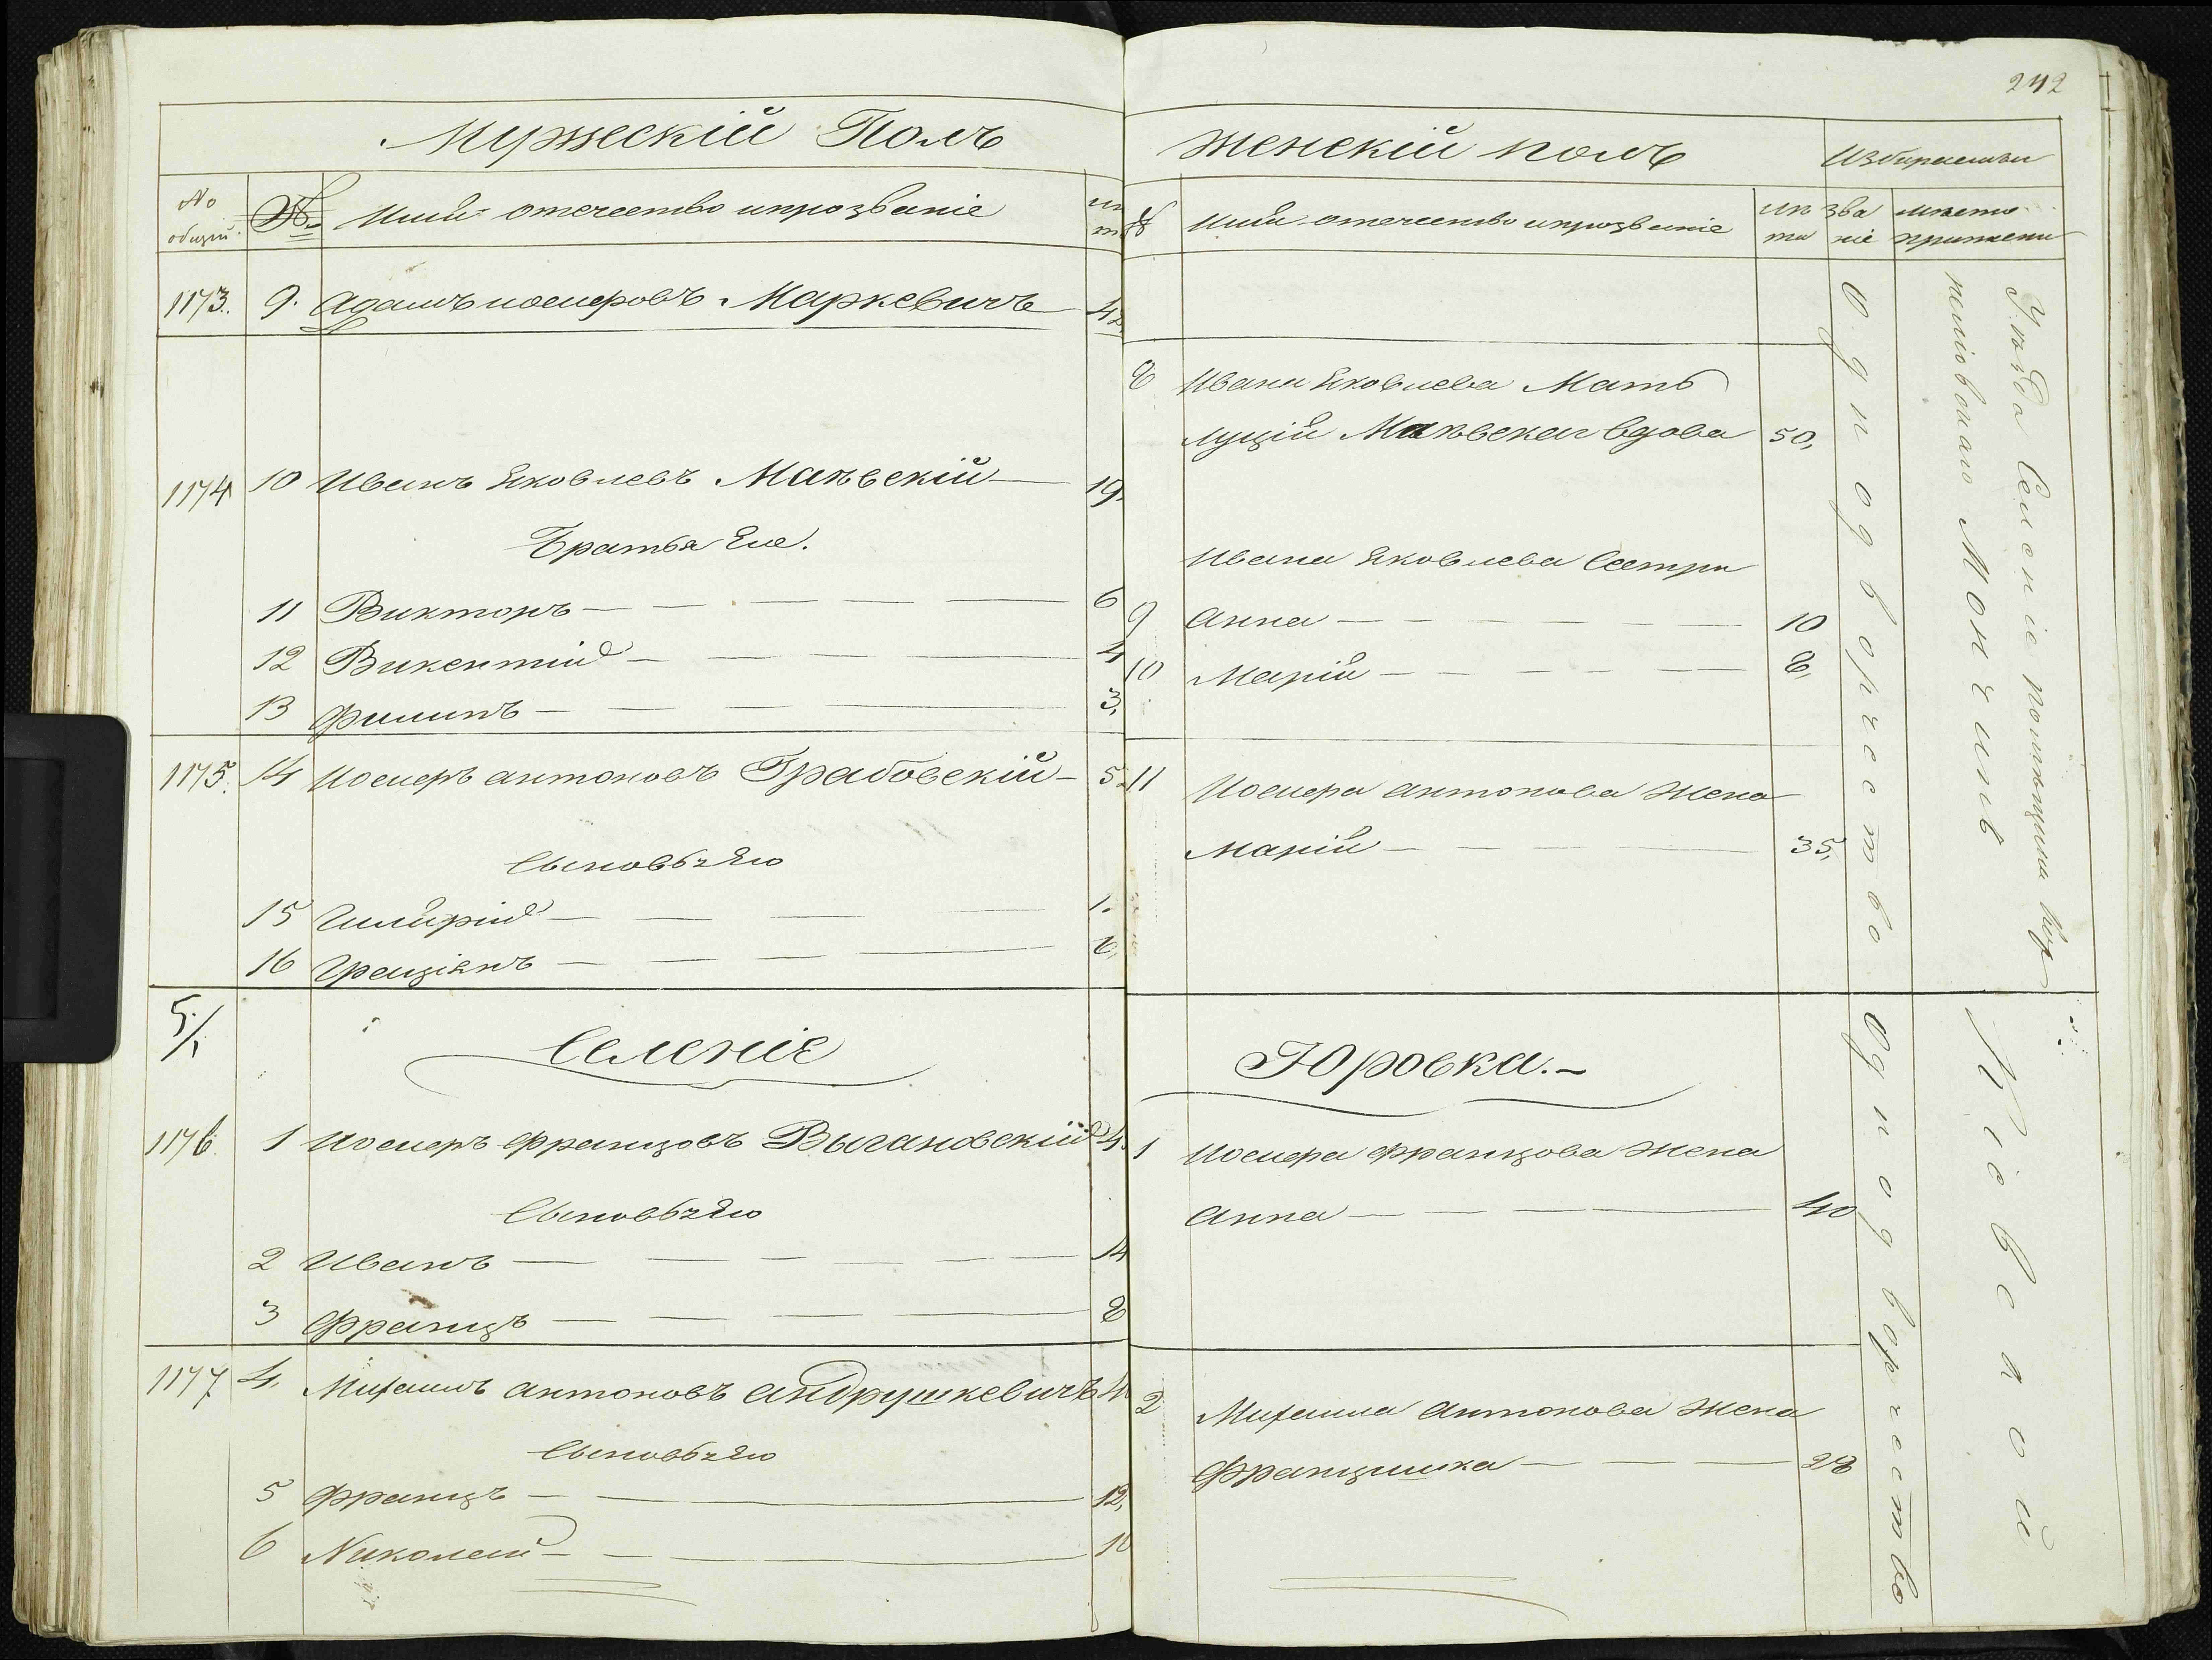 242
Мужескій Полъ
No общій
№
Имя отечество и прозваніе
1173. 9. Адамъ Іосифовъ Маркевичъ 42
1174 10 Иванъ Яковлевъ Маковскій 19.
Братья Его.
11 Викторъ 6
12 Викентій 4
13 Филипъ 3,
1175. 14 Иосифъ Антоновъ Грабовскій 5
Сыновья Его
15 Гиляріи 1.
16 Граціянъ
5/1
Селеніе
1176. 1 Иосифъ Францовъ Выгановскій 4
Сыновья Его
2 Иванъ 14
3 Францъ 8
1177 4. Михаилъ Антоновъ Андрушкевичъ
Сыновья Его
5 Францъ 12,
6 Николай
Женскій полъ
Избираетъ
№
Имя отечество и прозваніе
лѣта
званіе
мѣсто
8 Ивана Яковлева Мать
Луція Маковская вдова 50,
Ивана Яковлева Сестры
9 Анна 10
10 Марія 8,
11 Иосифа Антонова Жена
Марія 35,
Однодворчество
Уѣзда Селеніе
Юровка.
1 Иосифа Францова Жена
Анна 40
2 Михаила Антонова Жена
Францишка 28
Однодворчество
Кіевской